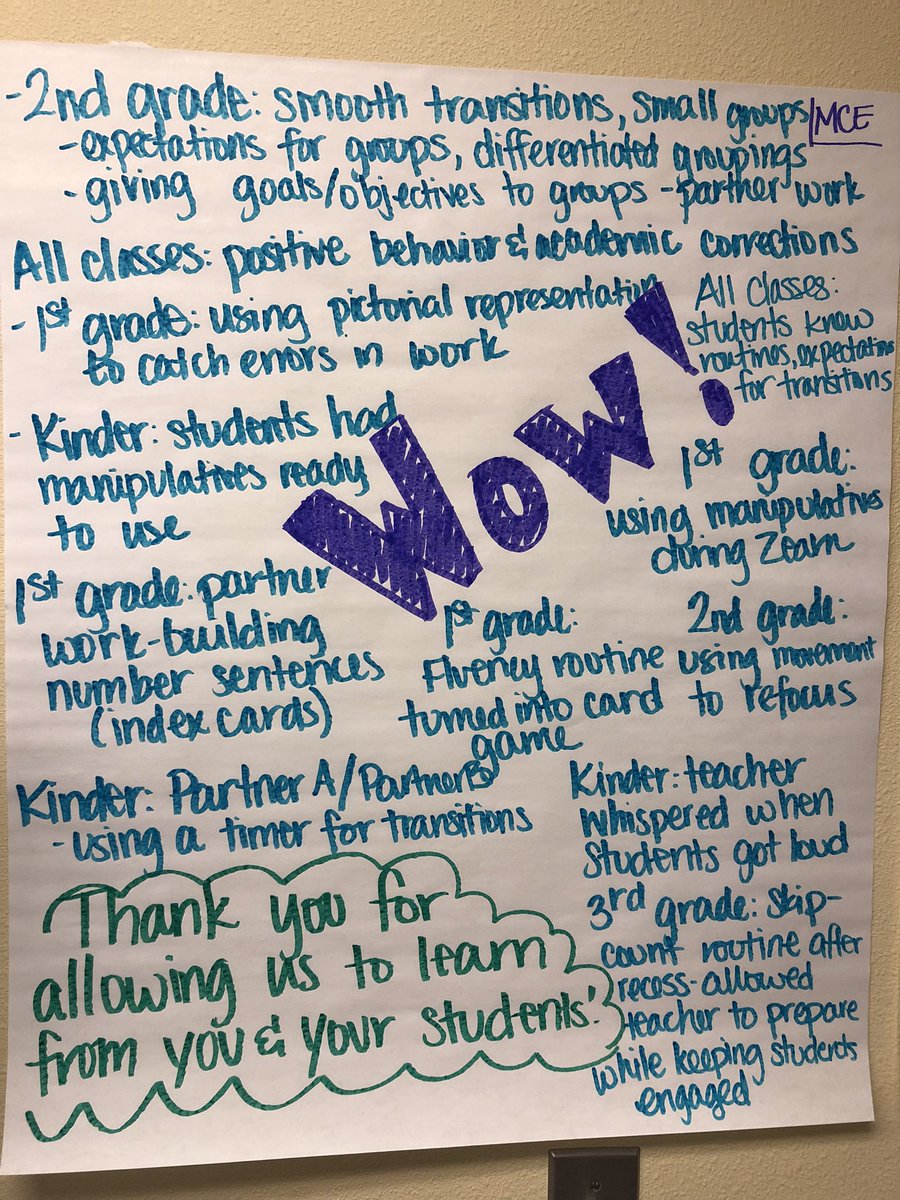 -2nd grade: smooth transitions, small groups
MCE
-expectations for groups, differentiated groupings
-giving goals/objectives to groups -partner work
All classes: positive behavior & academic corrections
-1st grade: using pictorial representation
to catch errors in work
All Classes:
students know
routines, expectations
for transitions
Wow!
-Kinder: students had
manipulatives ready
to use
1st grade:
using manipulatives
during Zearn
1st grade: partner
work-building
number sentences
(index cards)
1st grade:
Fluency routine
turned into card
game
2nd grade:
using movement
to refocus
Kinder: Partner A/Partner B
-using a timer for transitions
Kinder: teacher
whispered when
students got loud
3rd grade: skip-
count routine after
recess-allowed
teacher to prepare
while keeping students
engaged
Thank you for
allowing us to learn
from you & your students!